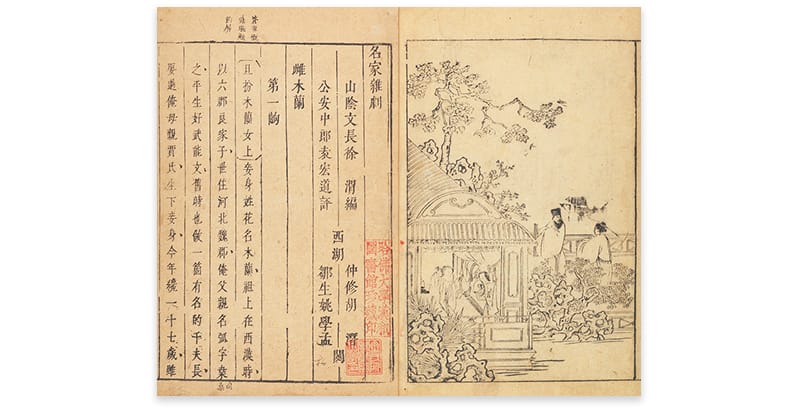 名家雜劇
山陰文長徐 渭編
公安中郎袁宏道評
西湖
仲修胡
鄒生姚學孟
閱
雌木蘭
第一齣
旦扮木蘭女上妾身姓花名木蘭祖上在西漢時
以六郡良家子世住河北魏郡俺父親名弧字桑
之平生好武能文舊時也做一箇有名的千夫長
娶過俺母親賈氏生下妾身今年纔一十七歲雖
哈佛大學漢和
圖書館珍藏印